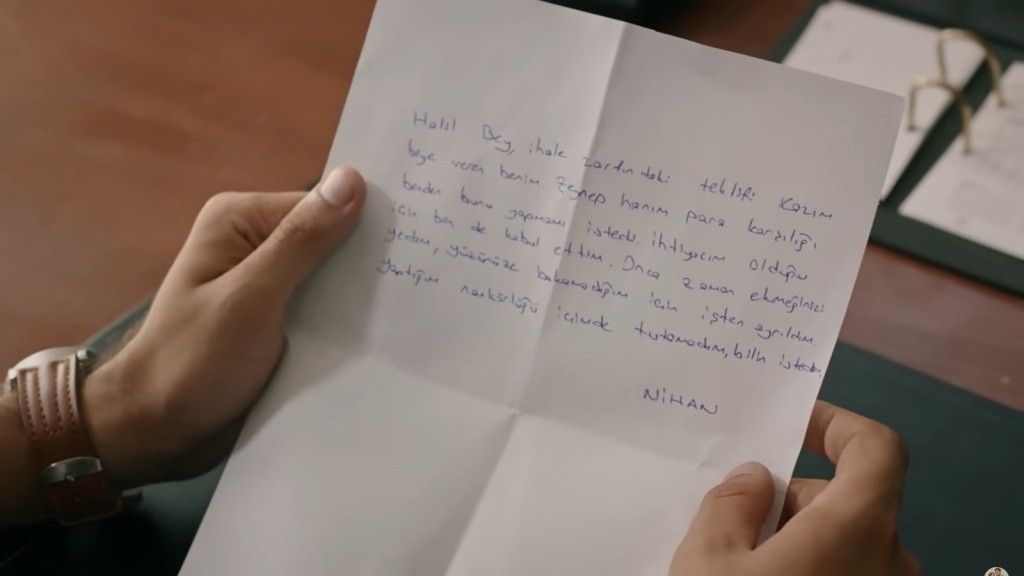 Halil Bey, ihale zarfındaki teklifi Kazım
beye veren benim. Zeynep hanım para karşılığı
benden bunu yapmamı istedi. İhtiyacım olduğu
için ben de kabul ettim. Onca zaman ekmeğinizi
yedim, yüzünüze bakamadığım için işten ayrıldım.
yaptığım nankörlüğü içimde tutamadım, bilin istedim
NİHAN